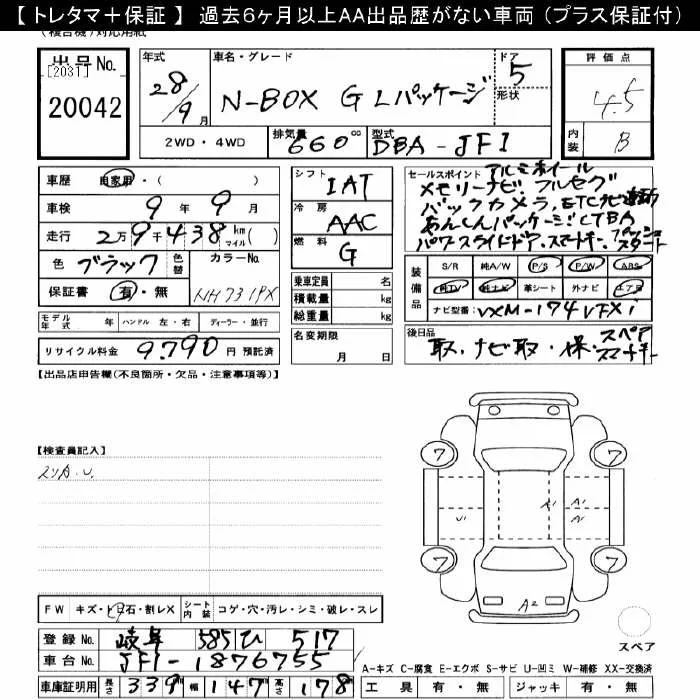 【 トレタマ＋保証 】 過去6ヶ月以上AA出品歴がない車両（プラス保証付）
(複合機)対応用紙
出品No. [2031] 20042
年式 28/9月
車名・グレード N-BOX G Lパッケージ
ドア 5 形状
評価点 4.5
内装 B
2WD・4WD 排気量 660cc 型式 DBA-JF1
車歴 自家用・( )
車検 9年 9月
走行 2万9千438 km マイル( )
色 ブラック 色替 カラーNo.
保証書 有・無 NH731PX
シフト IAT
冷房 AAC
燃料 G
乗車定員 名
積載量 kg
総重量 kg
名変期限 月 日
セールスポイント アルミホイール
メモリーナビ.フルセグ
バックカメラ.ETCナビ連動
あんしんパッケージCTBA
パワースライドドア.スマートキー.プッシュスタート
装備品 S/R 純A/W P/S P/W ABS
純TV 純ナビ 革シート 外ナビ エアB
ナビ型番: VXM-174VFXi
モデル年式 年 ハンドル 左・右 ディーラー・並行
リサイクル料金 9,790 円 預託済
後日品 取.ナビ取.保.スペアスマキー
【出品店申告欄(不良箇所・欠品・注意事項等)】
【検査員記入】
スリA.U.
7 7
U' A' A' A'
7 7
A2
スペア
FW キズ・ヒ石・割レX シート内装 コゲ・穴・汚レ・シミ・破レ・スレ
登録No. 岐阜 585 ひ 517
車台No. JF1-1876755
車庫証明用 長さ 339 幅 147 高さ 178
A-キズ C-腐食 E-エクボ S-サビ U-凹ミ W-補修 XX-交換済
工具 有・無 ジャッキ 有・無